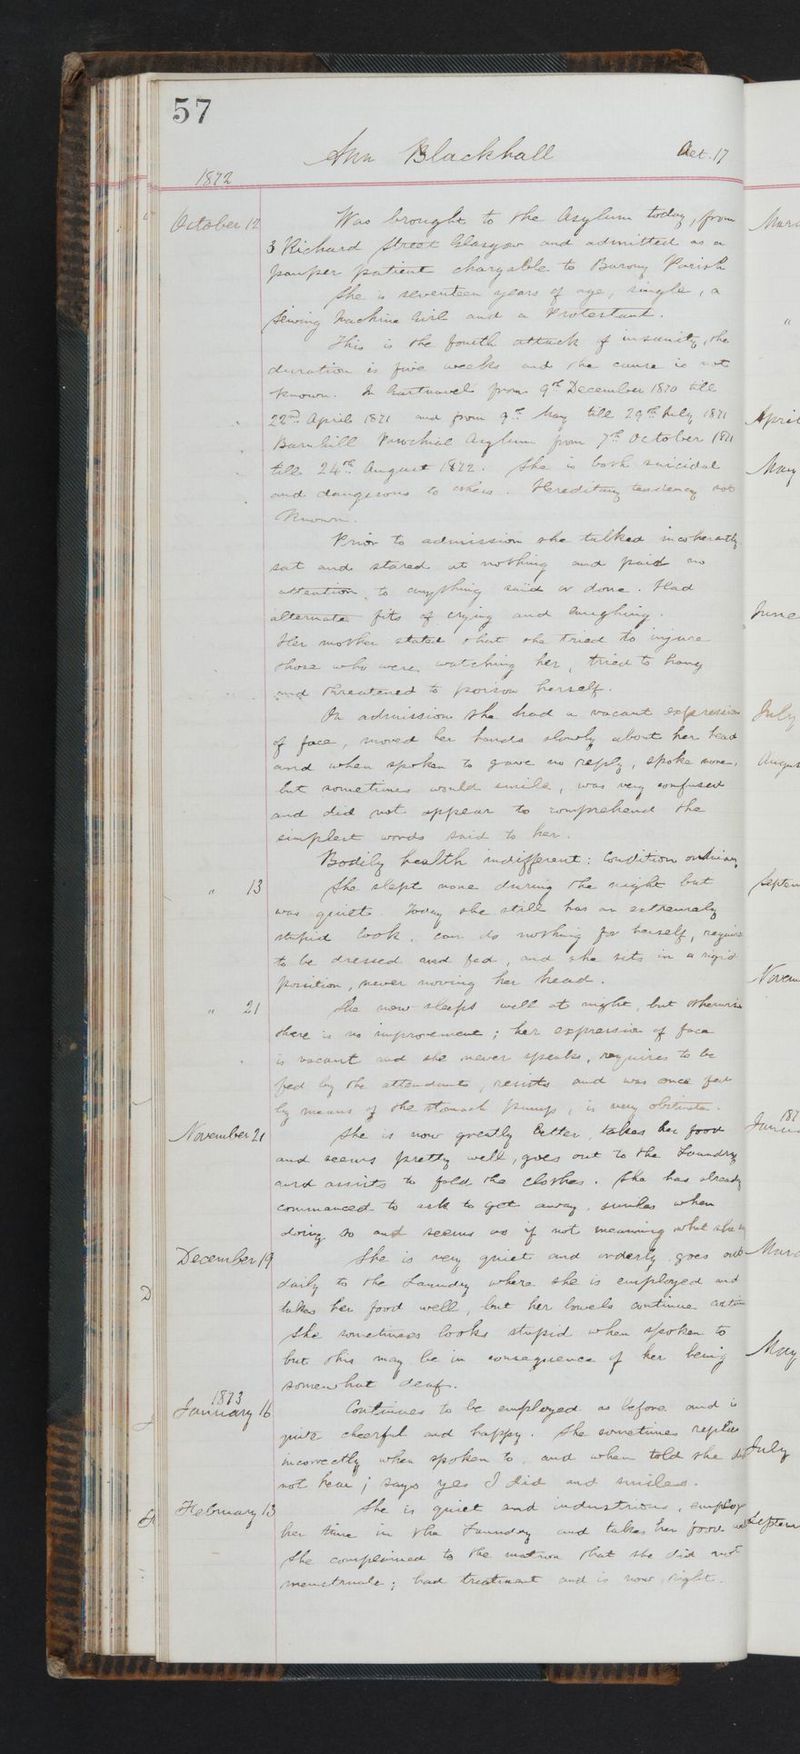 57
Ann Blackhall Aet. 17
1872
October 12 Was brought to the Asylum today, from
3 Richard Street Glasgow and admitted as a
pauper patient chargeable to Barony Parish
She is seventeen years of age, single, a
Sewing Machine Girl and a Protestant.
This is the fourth attack of insanity, the
duration is five weeks and the cause is not
known. In Gartnavel from 9th December 1870 till
22nd April 1871 and from 9th May till 29th July 1871
Barnhill Parochial Asylum from 7th October 1871
till 24th August 1872. She is both suicidal
and dangerous to others. Hereditary tendency not
known.
Prior to admission she talked incoherently
sat and stared at nothing and paid no
attention to anything said or done. Had
alternate fits of crying and laughing.
Her mother stated that she tried to injure
those who were watching her, tried to hang
and threatened to poison herself.
On admission she had a vacant expression
of face, moved her hands slowly about her head
and when spoken to gave no reply, spoke none,
but sometimes would smile, was very confused
and did not appear to comprehend the
simplest words said to her.
Bodily health indifferent: Condition ordinary
" 13 She slept none during the night but
was quiet. Today she still has an extremely
stupid look, can do nothing for herself, requires
to be dressed and fed, and she sits in a rigid
position, never moving her head.
" 21 She now sleeps well at night, but otherwise
there is no improvement; her expression of face
is vacant and she never speaks, requires to be
fed by the attendants, resists and was once fed
by means of the stomach pump, is very obstinate.
November 21 She is now greatly better, takes her food
and seems pretty well, goes out to the Laundry
and assists to fold the clothes. She has already
commenced to ask to get away, smiles when
doing so and seems as if not meaning what she
December 19 She is very quiet and orderly goes out
daily to the Laundry where she is employed and
takes her food well, but her bowels continue
She sometimes looks stupid when spoken to
but this may be in consequence of her being
somewhat deaf.
1873
January 16 Continues to be employed as before and is
quite cheerful and happy. She sometimes replies
incorrectly when spoken to and when told she did
not hear; says yes I did and smiles.
February 13 She is quiet and industrious, employ
her time in the Laundry and takes her food
She complained to the matron that she did not
menstruate; had treatment and is now right.
"
April
May
June
July
August
Septem
Novem
187
March
May
July
Septem